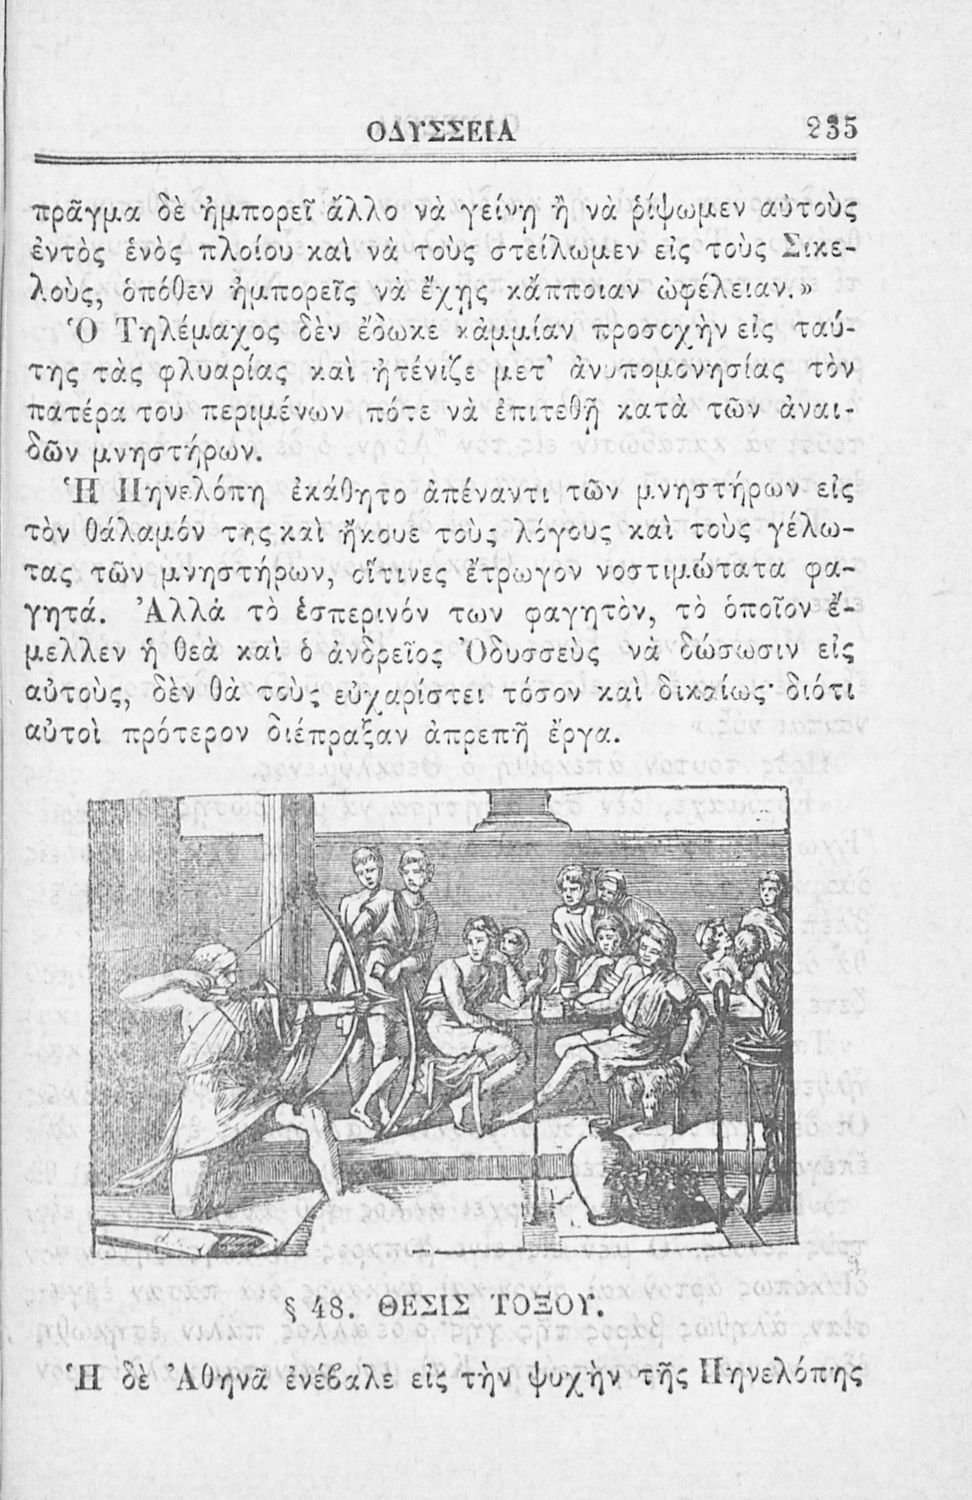 ΟΔΥΣΣΕΙΑ 235
πρᾶγμα δὲ ἠμπορεῖ ἄλλο νὰ γείνῃ ἢ νὰ ῥίψωμεν αὐτοὺς
ἐντὸς ἑνὸς πλοίου καὶ νὰ τοὺς στείλωμεν εἰς τοὺς Σικε-
λοὺς, ὁπόθεν ἠμπορεῖς νὰ ἔχῃς κἄπποιαν ὠφέλειαν.»
Ὁ Τηλέμαχος δὲν ἔδωκε κἀμμίαν προσοχὴν εἰς ταύ-
της τὰς φλυαρίας καὶ ἠτένιζε μετ’ ἀνυπομονησίας τὸν
πατέρα του περιμένων πότε νὰ ἐπιτεθῇ κατὰ τῶν ἀναι-
δῶν μνηστήρων.
Ἡ Πηνελόπη ἐκάθητο ἀπέναντι τῶν μνηστήρων εἰς
τὸν θάλαμόν της καὶ ἤκουε τοὺς λόγους καὶ τοὺς γέλω-
τας τῶν μνηστήρων, οἵτινες ἔτρωγον νοστιμώτατα φα-
γητά. Ἀλλὰ τὸ ἑσπερινόν των φαγητὸν, τὸ ὁποῖον ἔ-
μελλεν ἡ θεὰ καὶ ὁ ἀνδρεῖος Ὀδυσσεὺς νὰ δώσωσιν εἰς
αὐτοὺς, δὲν θὰ τοὺς εὐχαρίστει τόσον καὶ δικαίως· διότι
αὐτοὶ πρότερον διέπραξαν ἀπρεπῆ ἔργα.
§ 48. ΘΕΣΙΣ ΤΟΞΟΥ.
Ἡ δὲ Ἀθηνᾶ ἐνέβαλε εἰς τὴν ψυχὴν τῆς Πηνελόπης